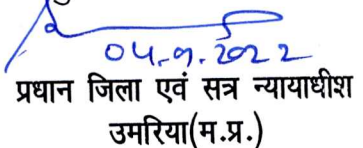 04.9.2022
प्रधान जिला एवं सत्र न्यायाधीश
उमरिया(म.प्र.)